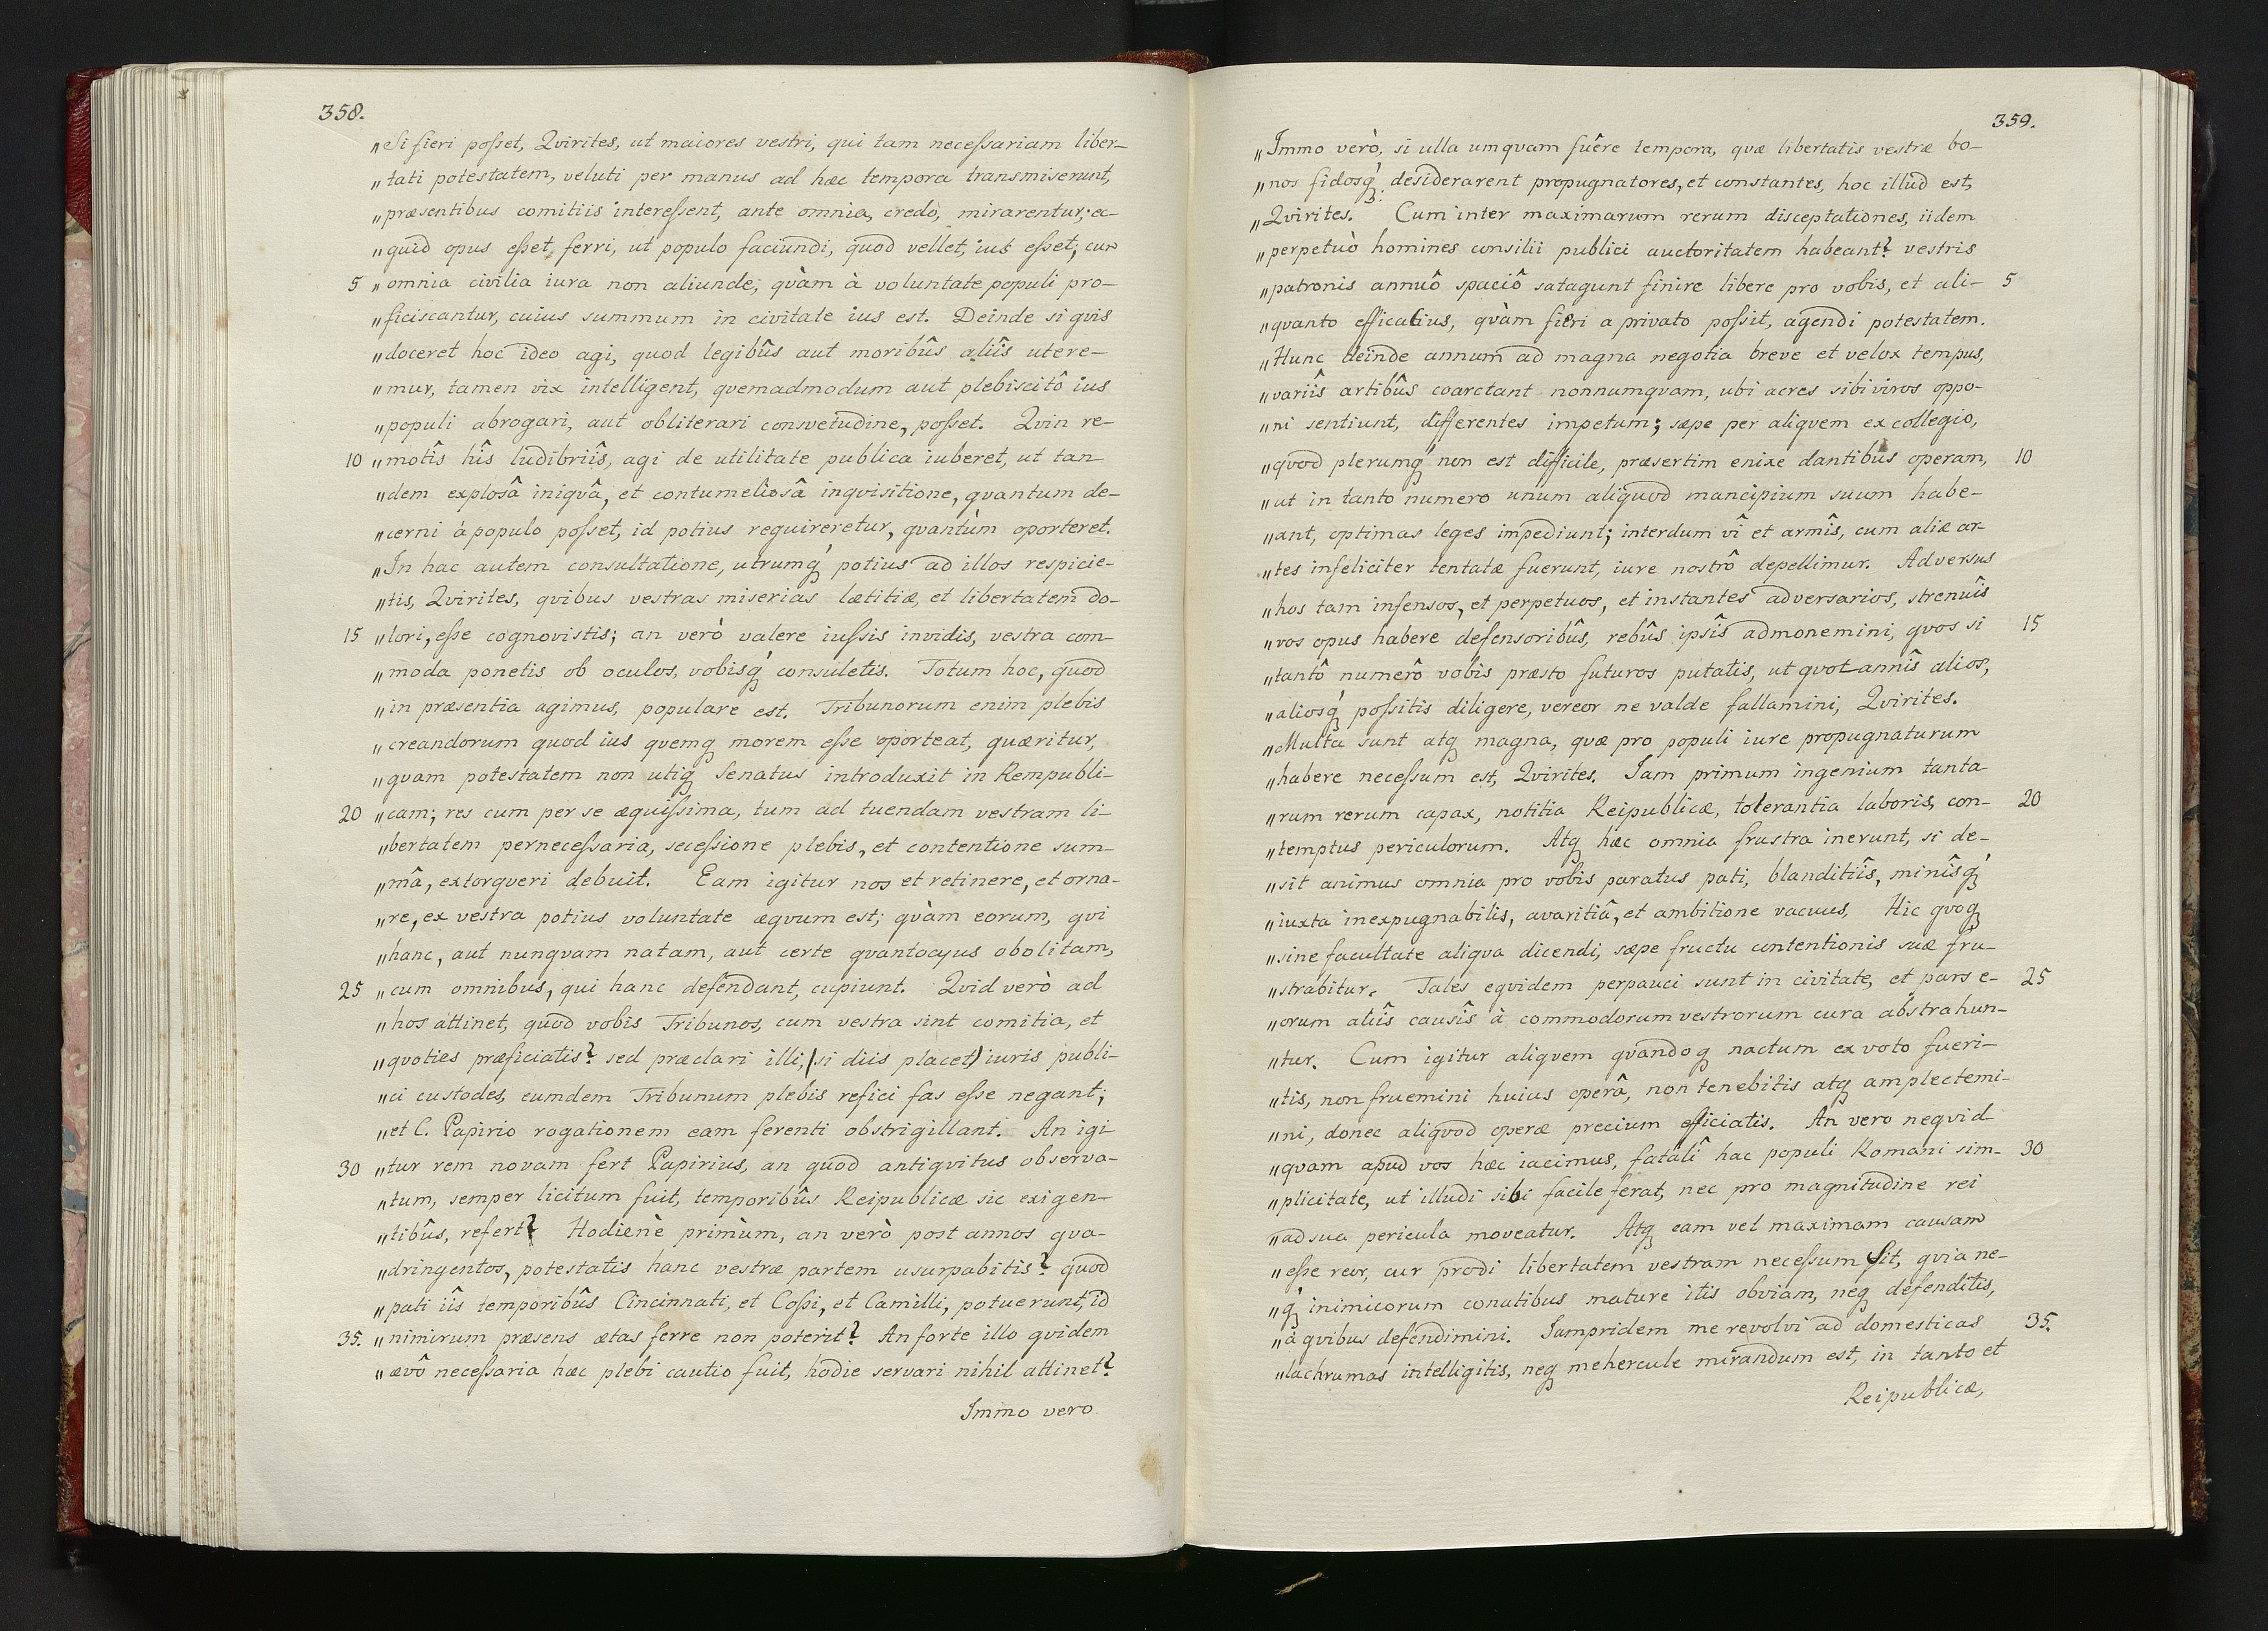 358.
„Si fieri poſset, Qvirites, ut maiores vestri, qui tam neceſsariam liber-
„tati potestatem, veluti per manus ad hæc tempora transmiserunt,
„præsentibus comitiis intereſsent, ante omnia, credo, mirarentur; ec-
„quid opus eſset, ferri, ut populo faciundi, quod vellet, ius eſset, cur
5 „omnia civilia iura non aliunde, qvàm à voluntate populi pro-
„ficiscantur, cuius summum in civitate ius est. Deinde si qvis
„doceret hoc ideo agi, quod legibûs aut moribûs aliîs utere-
„mur, tamen vix intelligent, qvemadmodum aut plebiscitô ius
„populi abrogari, aut obliterari consvetudine, poſset. Qvin re-
10 „motîs hîs ludibriîs, agi de utilitate publica iuberet, ut tan-
„dem explosâ iniqvâ, et contumeliosâ inqvisitione, qvantum de-
„cerni à populo poſset, id potius reqvireretur, qvantùm oporteret.
„In hac autem consultatione, utrumq́ potius ad illos respicie-
„tis, Qvirites, qvibus vestras miserias lætitiæ, et libertatem do-
15 „lori, eſse cognovistis; an verò valere iuſsis invidis, vestra com-
„moda ponetis ob oculos, vobisq́ consuletis. Totum hoc, quod
„in præsentia agimus, populare est. Tribunorum enim plebis
„creandorum quod ius qvemq morem eſse oporteat, quæritur,
„qvam potestatem non utiq Senatus introduxit in Rempubli-
20 „cam; res cum per se æquiſsima, tum ad tuendam vestram li-
„bertatem perneceſsaria, seceſsione plebis, et contentione sum-
„mâ, extorqveri debuit. Eam igitur nos et retinere, et orna-
„re, ex vestra potius voluntate æqvum est; qvàm eorum, qvi
„hanc, aut nunqvam natam, aut certe qvantocyus obolitam,
25 „cum omnibus, qui hanc defendant, cupiunt. Qvid verò ad
„hos attinet, quod vobis Tribunos, cum vestra sint comitia, et
„qvoties præficiatis? sed præclari illi, (si diis placet) iuris publi-
„ci custodes, eumdem Tribunum plebis refici fas eſse negant;
„et C. Papirio rogationem eam ferenti obstrigillant. An igi-
30 „tur rem novam fert Papirius, an quod antiqvitus observa-
„tum, semper licitum fuit, temporibûs Reipublicæ sic exigen-
„tibûs, refert? Hodienè primùm, an verò post annos qva-
„dringentos, potestatis hanc vestræ partem usurpabitis? quod
„pati iîs temporibûs Cincinnati, et Coſsi, et Camilli, potuerunt, id
35. „nimirum præsens ætas ferre non poterit? An forte illo qvidem
„ævô neceſsaria hæc plebi cautio fuit, hodie servari nihil attinet?
Immo vero
359.
„Immo verò, si ulla umqvam fuêre tempora, quæ libertatis vestræ bo-
„nos fidosq́, desiderarent propugnatores, et constantes, hoc illud est,
„Qvirites. Cum inter maximarum rerum disceptationes, iidem
„perpetuò homines consilii publici auctoritatem habeant? vestris
„patronis annuô spaciô satagunt finire libere pro vobis, et ali- 5
„quanto efficatius, qvàm fieri a privato poſsit, agendi potestatem.
„Hunc deinde annum ad magna negotia breve et velox tempus,
„variîs artibûs coarctant nonnumqvam, ubi acres sibi viros oppo-
„ni sentiunt, differentes impetum; sæpe per aliqvem ex collegio,
„qvod plerumq́ non est difficile, præsertim enixe dantibus operam, 10
„ut in tanto numero unum aliqvod mancipium suum habe-
„ant, optimas leges impediunt; interdum vî et armîs, cum aliæ ar-
„tes infeliciter tentatæ fuerunt, iure nostrô depellimur. Adversus
„hos tam infensos, et perpetuos, et instantes adversarios, strenuîs
„vos opus habere defensoribûs, rebûs ipsîs admonemini, qvos si 15
„tantô numerô vobis præsto futuros putatis, ut qvot annîs alios,
„aliosq́ poſsitis diligere, vereor ne valde fallamini, Qvirites.
„Multa sunt atq magna, quæ pro populi iure propugnaturum
„habere neceſsum est, Qvirites. Iam primum ingenium tanta-
„rum rerum capax, notitia Reipublicæ, tolerantia laboris, con- 20
„temptus periculorum. Atq hæc omnia frustra inerunt, si de-
„sit animus omnia pro vobis paratus pati, blanditiîs, minîsq́
„iuxta inexpugnabilis, avaritiâ, et ambitione vacuus. Hic qvoq
„sine facultate aliqva dicendi, sæpe fructu contentionis suæ fru-
„strabitur. Tales eqvidem perpauci sunt in civitate, et pars e- 25
„orum aliîs causîs à commodorum vestrorum cura abstrahun-
„tur. Cum igitur aliqvem qvandoq nactum ex voto fueri-
„tis, non fruemini huius operâ, non tenebitis atq amplectemi-
„ni, donec aliqvod operæ precium efficiatis. An vero neqvid-
„qvam apud vos hæc iacimus, fatalî hac populi Romani sim- 30
„plicitate, ut illudi sibi facile ferat, nec pro magnitudine rei
„ad sua pericula moveatur. Atq eam vel maximam causam
„eſse reor, cur prodi libertatem vestram neceſsum sit, qvia ne-
„q́ inimicorum conatibus mature itis obviam, neq defenditis,
„à qvibus defendimini. Iampridem me revolvi ad domesticas 35.
„lachrumas intelligitis, neq mehercule mirandum est, in tanto et
Reipublicæ,